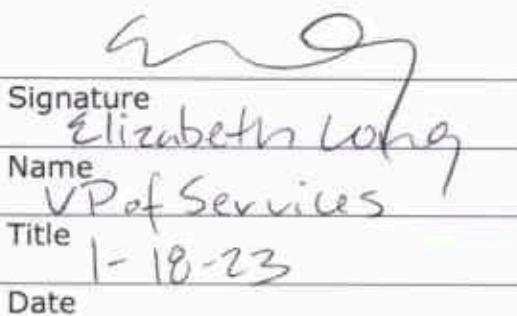 Signature
Elizabeth Long
Name
VP of Services
Title
1-18-23
Date